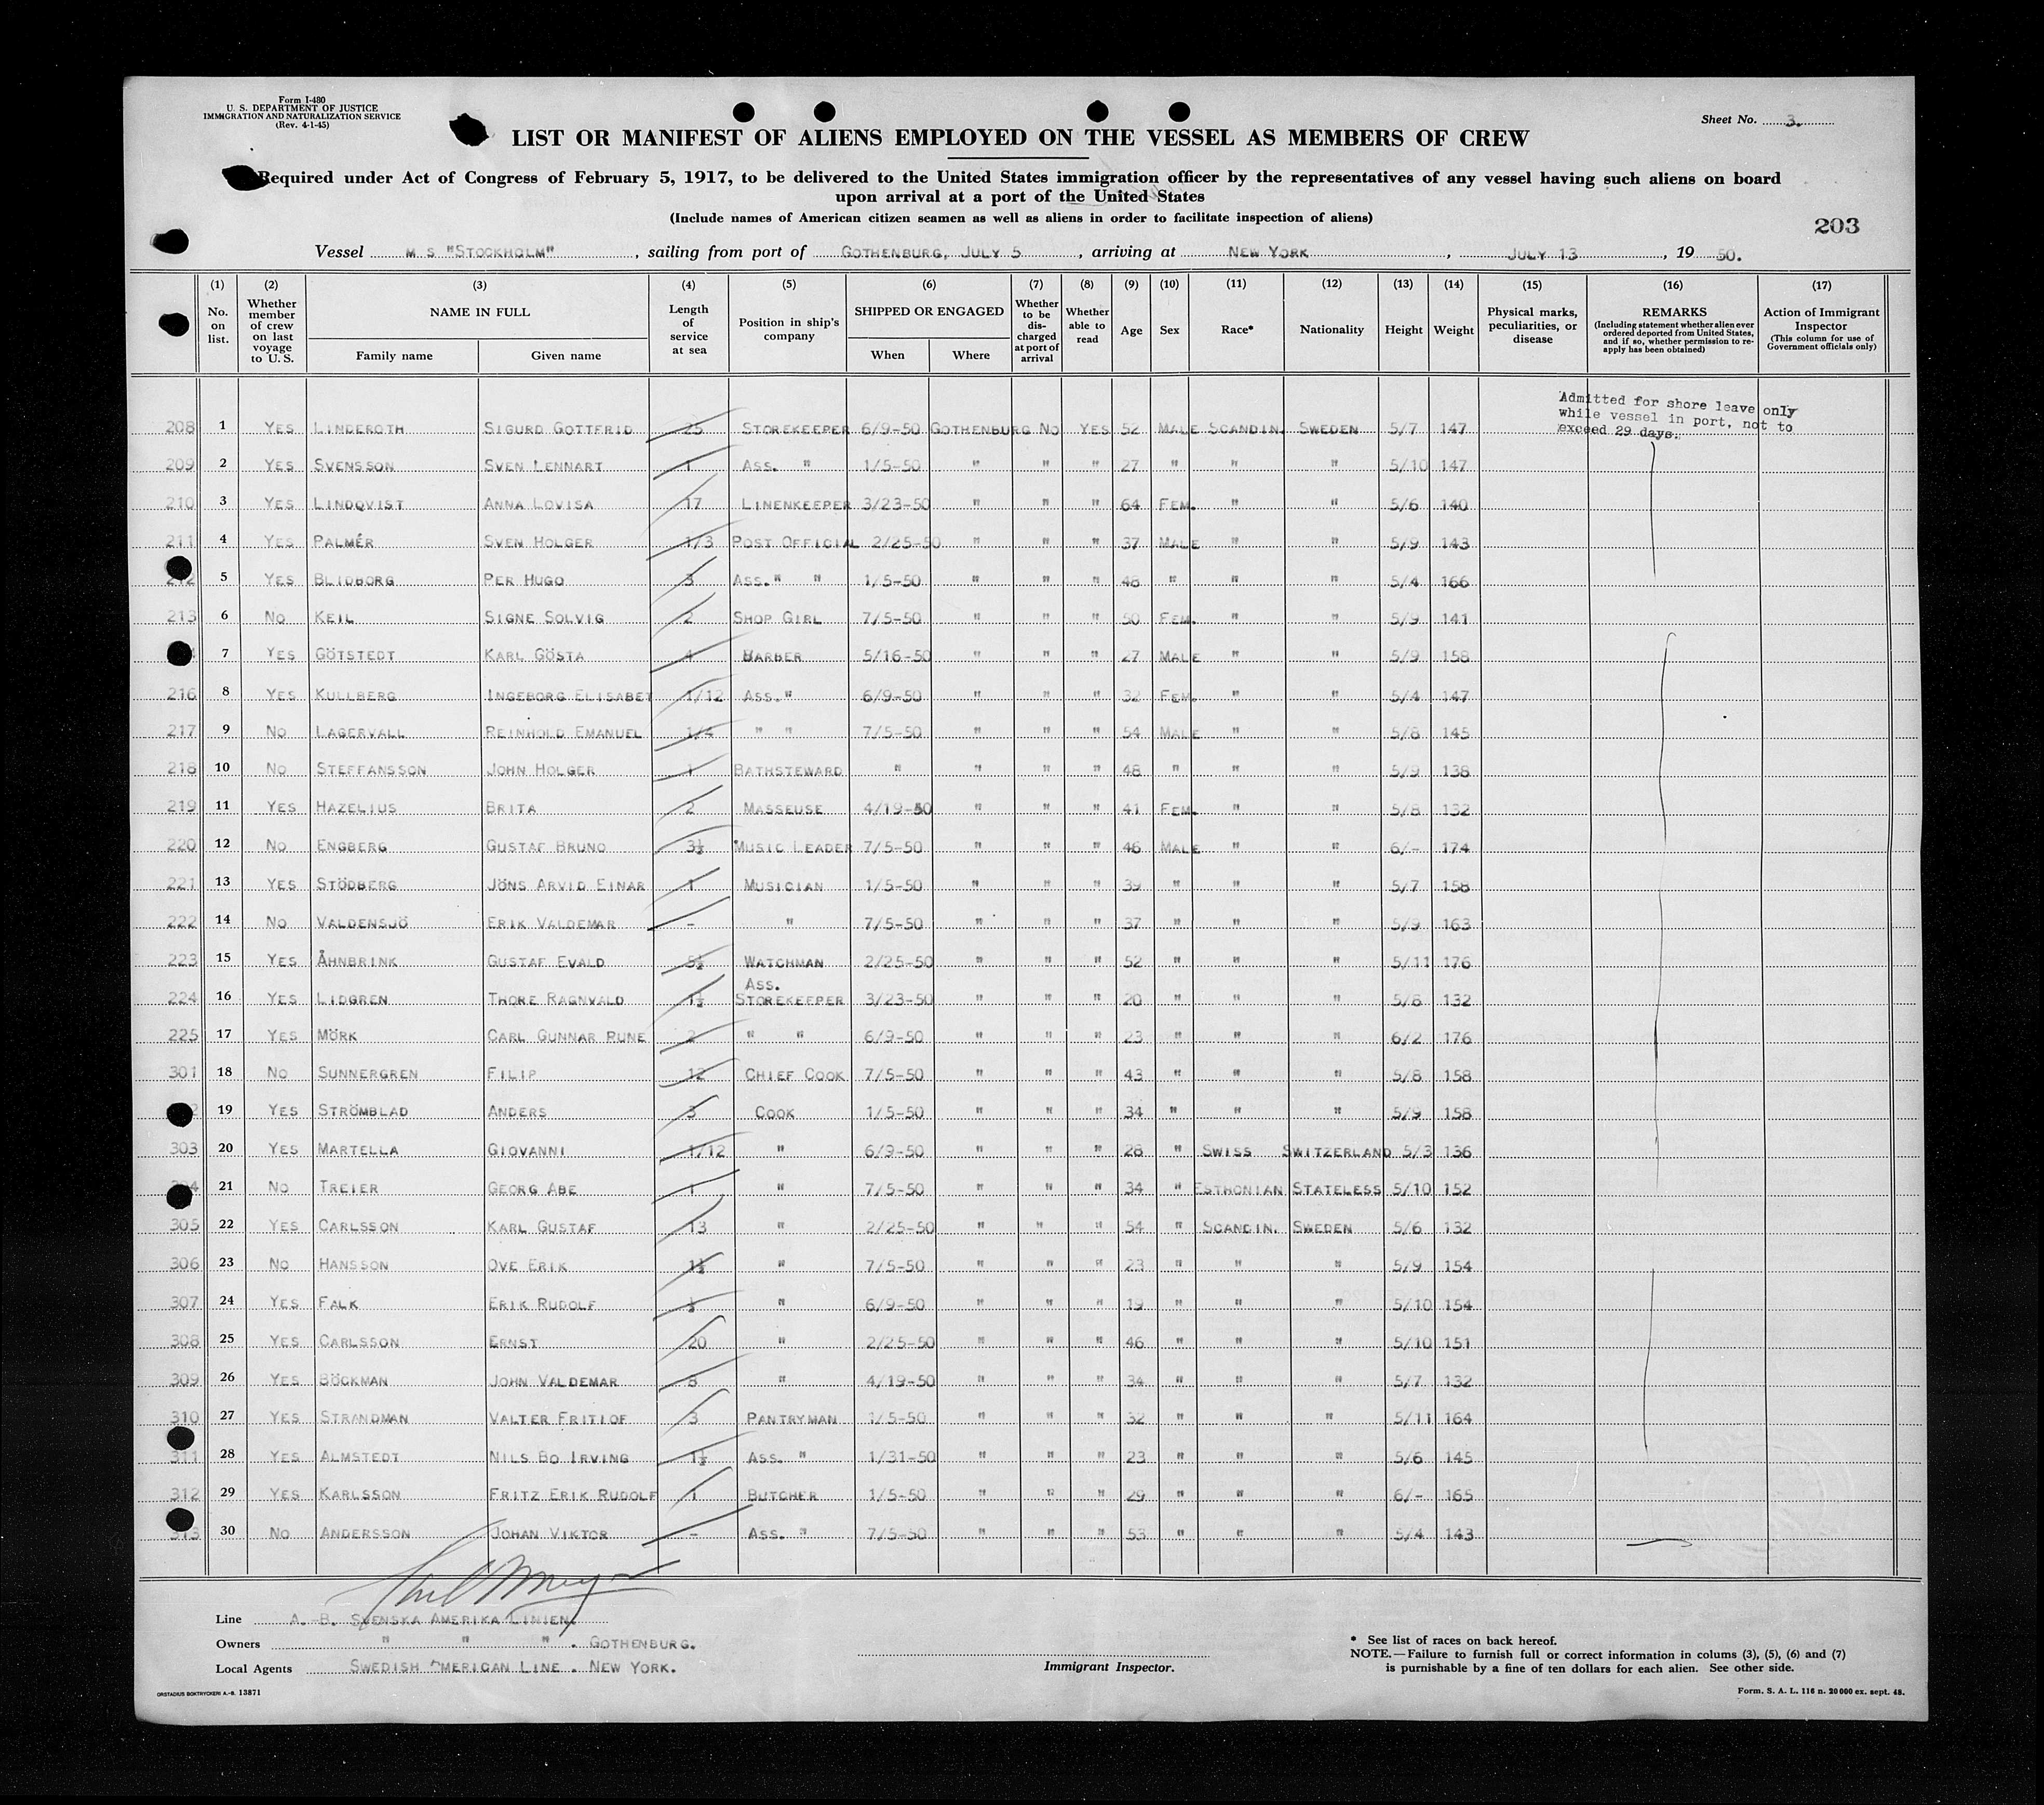 Form I-480
U. S. DEPARTMENT OF JUSTICE
IMMIGRATION AND NATURALIZATION SERVICE
(Rev. 4-1-45)
Sheet No. 3.
LIST OR MANIFEST OF ALIENS EMPLOYED ON THE VESSEL AS MEMBERS OF CREW
Required under Act of Congress of February 5, 1917, to be delivered to the United States immigration officer by the representatives of any vessel having such aliens on board
upon arrival at a port of the United States
(Include names of American citizen seamen as well as aliens in order to facilitate inspection of aliens)
203
Vessel M S "STOCKHOLM", sailing from port of GOTHENBURG, JULY 5, arriving at NEW YORK, JULY 13, 19 50.
(1) No. on list. (2) Whether member of crew on last voyage to U. S. (3) NAME IN FULL Family name Given name (4) Length of service at sea (5) Position in ship's company (6) SHIPPED OR ENGAGED When Where (7) Whether to be discharged at port of arrival (8) Whether able to read (9) Age (10) Sex (11) Race* (12) Nationality (13) Height (14) Weight (15) Physical marks, peculiarities, or disease (16) REMARKS (Including statement whether alien ever ordered deported from United States, and if so, whether permission to re-apply has been obtained) (17) Action of Immigrant Inspector (This column for use of Government officials only)
Admitted for shore leave only
while vessel in port, not to
exceed 29 days.
208 1 YES LINDEROTH SIGURD GOTTFRID 25 STOREKEEPER 6/9-50 GOTHENBURG NO YES 52 MALE SCANDIN. SWEDEN 5/7 147
209 2 YES SVENSSON SVEN LENNART 1 ASS. " 1/5-50 " " " 27 " " " 5/10 147
210 3 YES LINDQVIST ANNA LOVISA 17 LINENKEEPER 3/23-50 " " " 64 FEM. " " 5/6 140
211 4 YES PALMÉR SVEN HOLGER 1/3 POST OFFICIAL 2/25-50 " " " 37 MALE " " 5/9 143
5 YES BLIDBORG PER HUGO 3 ASS. " " 1/5-50 " " " 48 " " " 5/4 166
213 6 NO KEIL SIGNE SOLVIG 2 SHOP GIRL 7/5-50 " " " 50 FEM. " " 5/9 141
7 YES GÖTSTEDT KARL GÖSTA 4 BARBER 5/16-50 " " " 27 MALE " " 5/9 158
216 8 YES KULLBERG INGEBORG ELISABET 1/12 ASS. " 6/9-50 " " " 32 FEM. " " 5/4 147
217 9 NO LAGERVALL REINHOLD EMANUEL 1/4 " " 7/5-50 " " " 54 MALE " " 5/8 145
218 10 NO STEFFANSSON JOHN HOLGER 1 BATHSTEWARD " " " " 48 " " " 5/9 138
219 11 YES HAZELIUS BRITA 2 MASSEUSE 4/19-50 " " " 41 FEM. " " 5/8 132
220 12 NO ENGBERG GUSTAF BRUNO 3½ MUSIC LEADER 7/5-50 " " " 46 MALE " " 6/- 174
221 13 YES STÖDBERG JÖNS ARVID EINAR 1 MUSICIAN 1/5-50 " " " 39 " " " 5/7 158
222 14 NO VALDENSJÖ ERIK VALDEMAR - " 7/5-50 " " " 37 " " " 5/9 163
223 15 YES ÅHNBRINK GUSTAF EVALD 5½ WATCHMAN 2/25-50 " " " 52 " " " 5/11 176
224 16 YES LIDGREN THORE RAGNVALD 1½ ASS. STOREKEEPER 3/23-50 " " " 20 " " " 5/8 132
225 17 YES MÖRK CARL GUNNAR RUNE 2 " " 6/9-50 " " " 23 " " " 6/2 176
301 18 NO SUNNERGREN FILIP 12 CHIEF COOK 7/5-50 " " " 43 " " " 5/8 158
19 YES STRÖMBLAD ANDERS 3 COOK 1/5-50 " " " 34 " " " 5/9 158
303 20 YES MARTELLA GIOVANNI 1/12 " 6/9-50 " " " 28 " SWISS SWITZERLAND 5/3 136
21 NO TREIER GEORG ABE 1 " 7/5-50 " " " 34 " ESTHONIAN STATELESS 5/10 152
305 22 YES CARLSSON KARL GUSTAF 13 " 2/25-50 " " " 54 " SCANDIN. SWEDEN 5/6 132
306 23 NO HANSSON OVE ERIK 1½ " 7/5-50 " " " 23 " " " 5/9 154
307 24 YES FALK ERIK RUDOLF ½ " 6/9-50 " " " 19 " " " 5/10 154
308 25 YES CARLSSON ERNST 20 " 2/25-50 " " " 46 " " " 5/10 151
309 26 YES BÖCKMAN JOHN VALDEMAR 8 " 4/19-50 " " " 34 " " " 5/7 132
310 27 YES STRANDMAN VALTER FRITIOF 3 PANTRYMAN 1/5-50 " " " 32 " " " 5/11 164
311 28 YES ALMSTEDT NILS BO IRVING 1½ ASS. " 1/31-50 " " " 23 " " " 5/6 145
312 29 YES KARLSSON FRITZ ERIK RUDOLF 1 BUTCHER 1/5-50 " " " 29 " " " 6/- 165
313 30 NO ANDERSSON JOHAN VIKTOR - ASS. " 7/5-50 " " " 53 " " " 5/4 143
Line A.-B. SVENSKA AMERIKA LINIEN.
Owners " " " . GOTHENBURG.
Local Agents SWEDISH AMERICAN LINE. NEW YORK.
Immigrant Inspector.
* See list of races on back hereof.
NOTE.—Failure to furnish full or correct information in colums (3), (5), (6) and (7)
is punishable by a fine of ten dollars for each alien. See other side.
ORSTADIUS BOKTRYCKERI A.-B. 13871
Form. S. A. L. 116 n. 20000 ex. sept. 48.